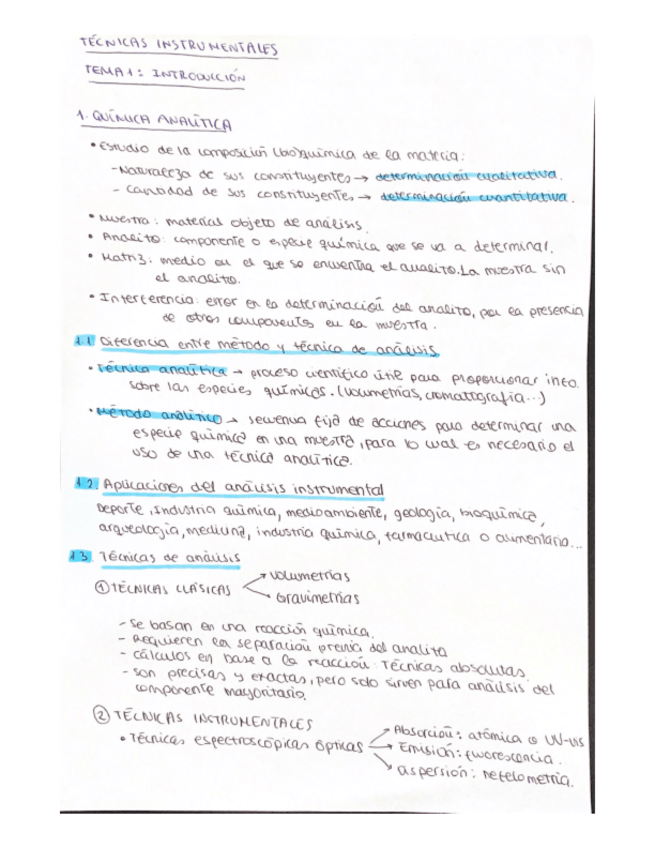 TÉCNICAS INSTRUMENTALES
TEMA 1: INTRODUCCIÓN
1. QUÍMICA ANALÍTICA
• Estudio de la composición (bio)química de la materia:
- Naturaleza de sus constituyentes → determinación cualitativa.
- Cantidad de sus constituyentes → determinación cuantitativa.
• Muestra: material objeto de análisis.
• Analito: componente o especie química que se va a determinar.
• Matriz: medio en el que se encuentra el analito. La muestra sin
el analito.
• Interferencia: error en la determinación del analito, por la presencia
de otros componentes en la muestra.
1.1 Diferencia entre método y técnica de análisis
• Técnica analítica → proceso científico útil para proporcionar info.
sobre las especies químicas. (volumetrías, cromatografía...)
• Método analítico → secuencia fija de acciones para determinar una
especie química en una muestra, para lo cual es necesario el
uso de una técnica analítica.
1.2. Aplicaciones del análisis instrumental
Deporte, industria química, medioambiente, geología, bioquímica,
arqueología, medicina, industria química, farmaceutica o alimentaria...
1.3. Técnicas de análisis
① TÉCNICAS CLÁSICAS → Volumetrías
→ Gravimetrías
- Se basan en una reacción química.
- Requieren la separación previa del analito
- cálculos en base a la reacción: Técnicas absolutas.
- son precisas y exactas, pero solo sirven para análisis del
componente mayoritario.
② TÉCNICAS INSTRUMENTALES
• Técnicas espectroscópicas ópticas → Absorción: atómica o UV-vis
→ Emisión: fluorescencia.
→ dispersión: nefelometría.